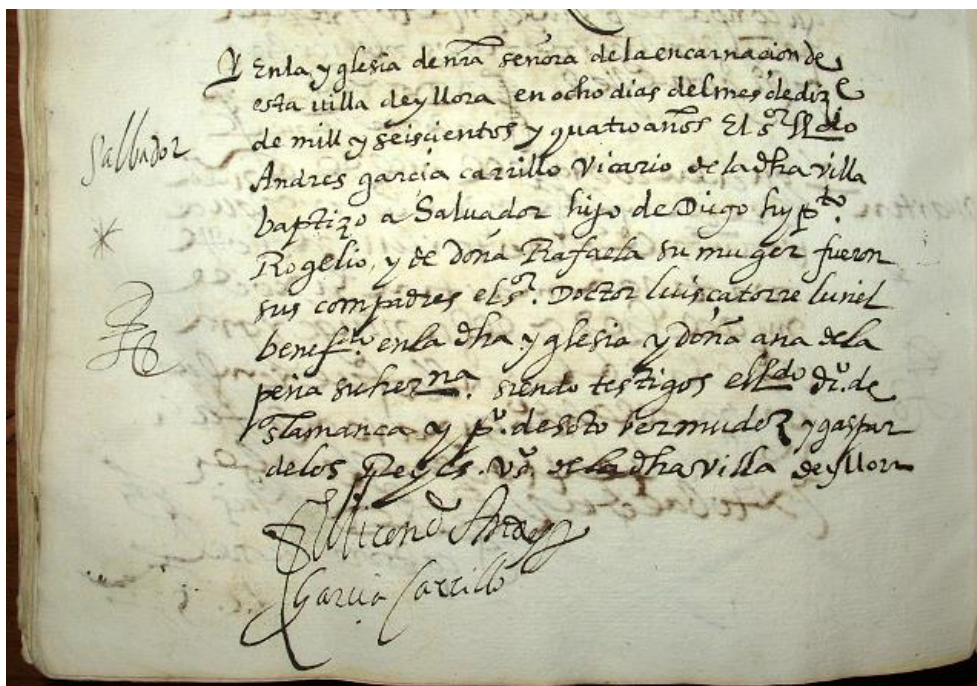 Salbador
Y Enla yglesia de nra señora de la encarnacion de
esta uilla de yllora en ocho dias del mes de dize
de mill y seiscientos y quatro años El sor lldo
Andres garcia carrillo Vicario de la dha villa
baptizo a Salvador hijo de Diego hypto.
Rogelio, y de doña Rafaela su muger fueron
sus compadres el sor. Doctor luis catorre
benefdo. en la dha yglesia y doña ana de la
peña su herna. siendo testigos el lldo du. de
Salamanca y po. de soto bermudez y gaspar
de los Reyes. vos. de la dha villa de yllora
El licendo Andres
Garcia Carrillo